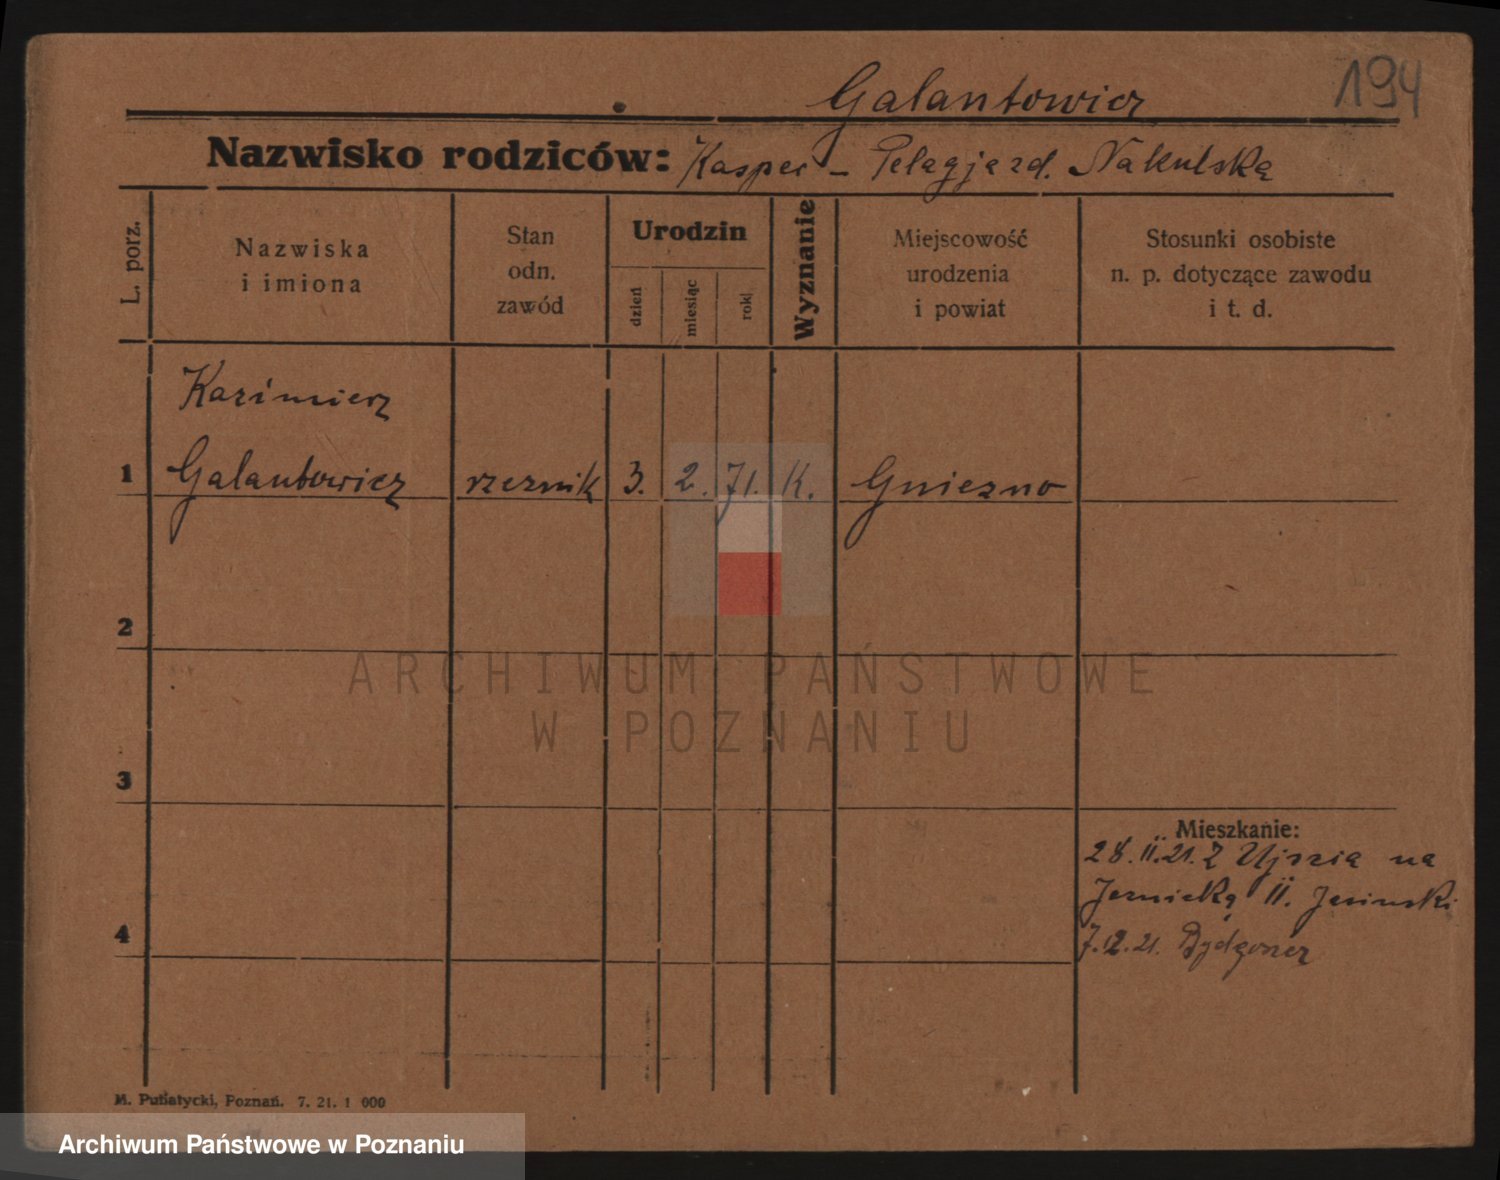 194
Galantowicz
Nazwisko rodziców: Kasper - Pelagja zd. Nakulską
L. porz.
Nazwiska
i imiona
Stan
odn.
zawód
Urodzin
dzień
miesiąc
rok
Wyznanie
Miejscowość
urodzenia
i powiat
Stosunki osobiste
n. p. dotyczące zawodu
i t. d.
Kazimierz
1 Galantowicz rzeznik 3. 2. 71. K. Gniezno
2
3
ARCHIWUM PAŃSTWOWE
W POZNANIU
Mieszkanie:
28.II.21. Z Ujszia na
II. Jasinski
4
7.12.21. Bydgoszcz
M. Putiatycki, Poznań. 7. 21. 1 000
Archiwum Państwowe w Poznaniu